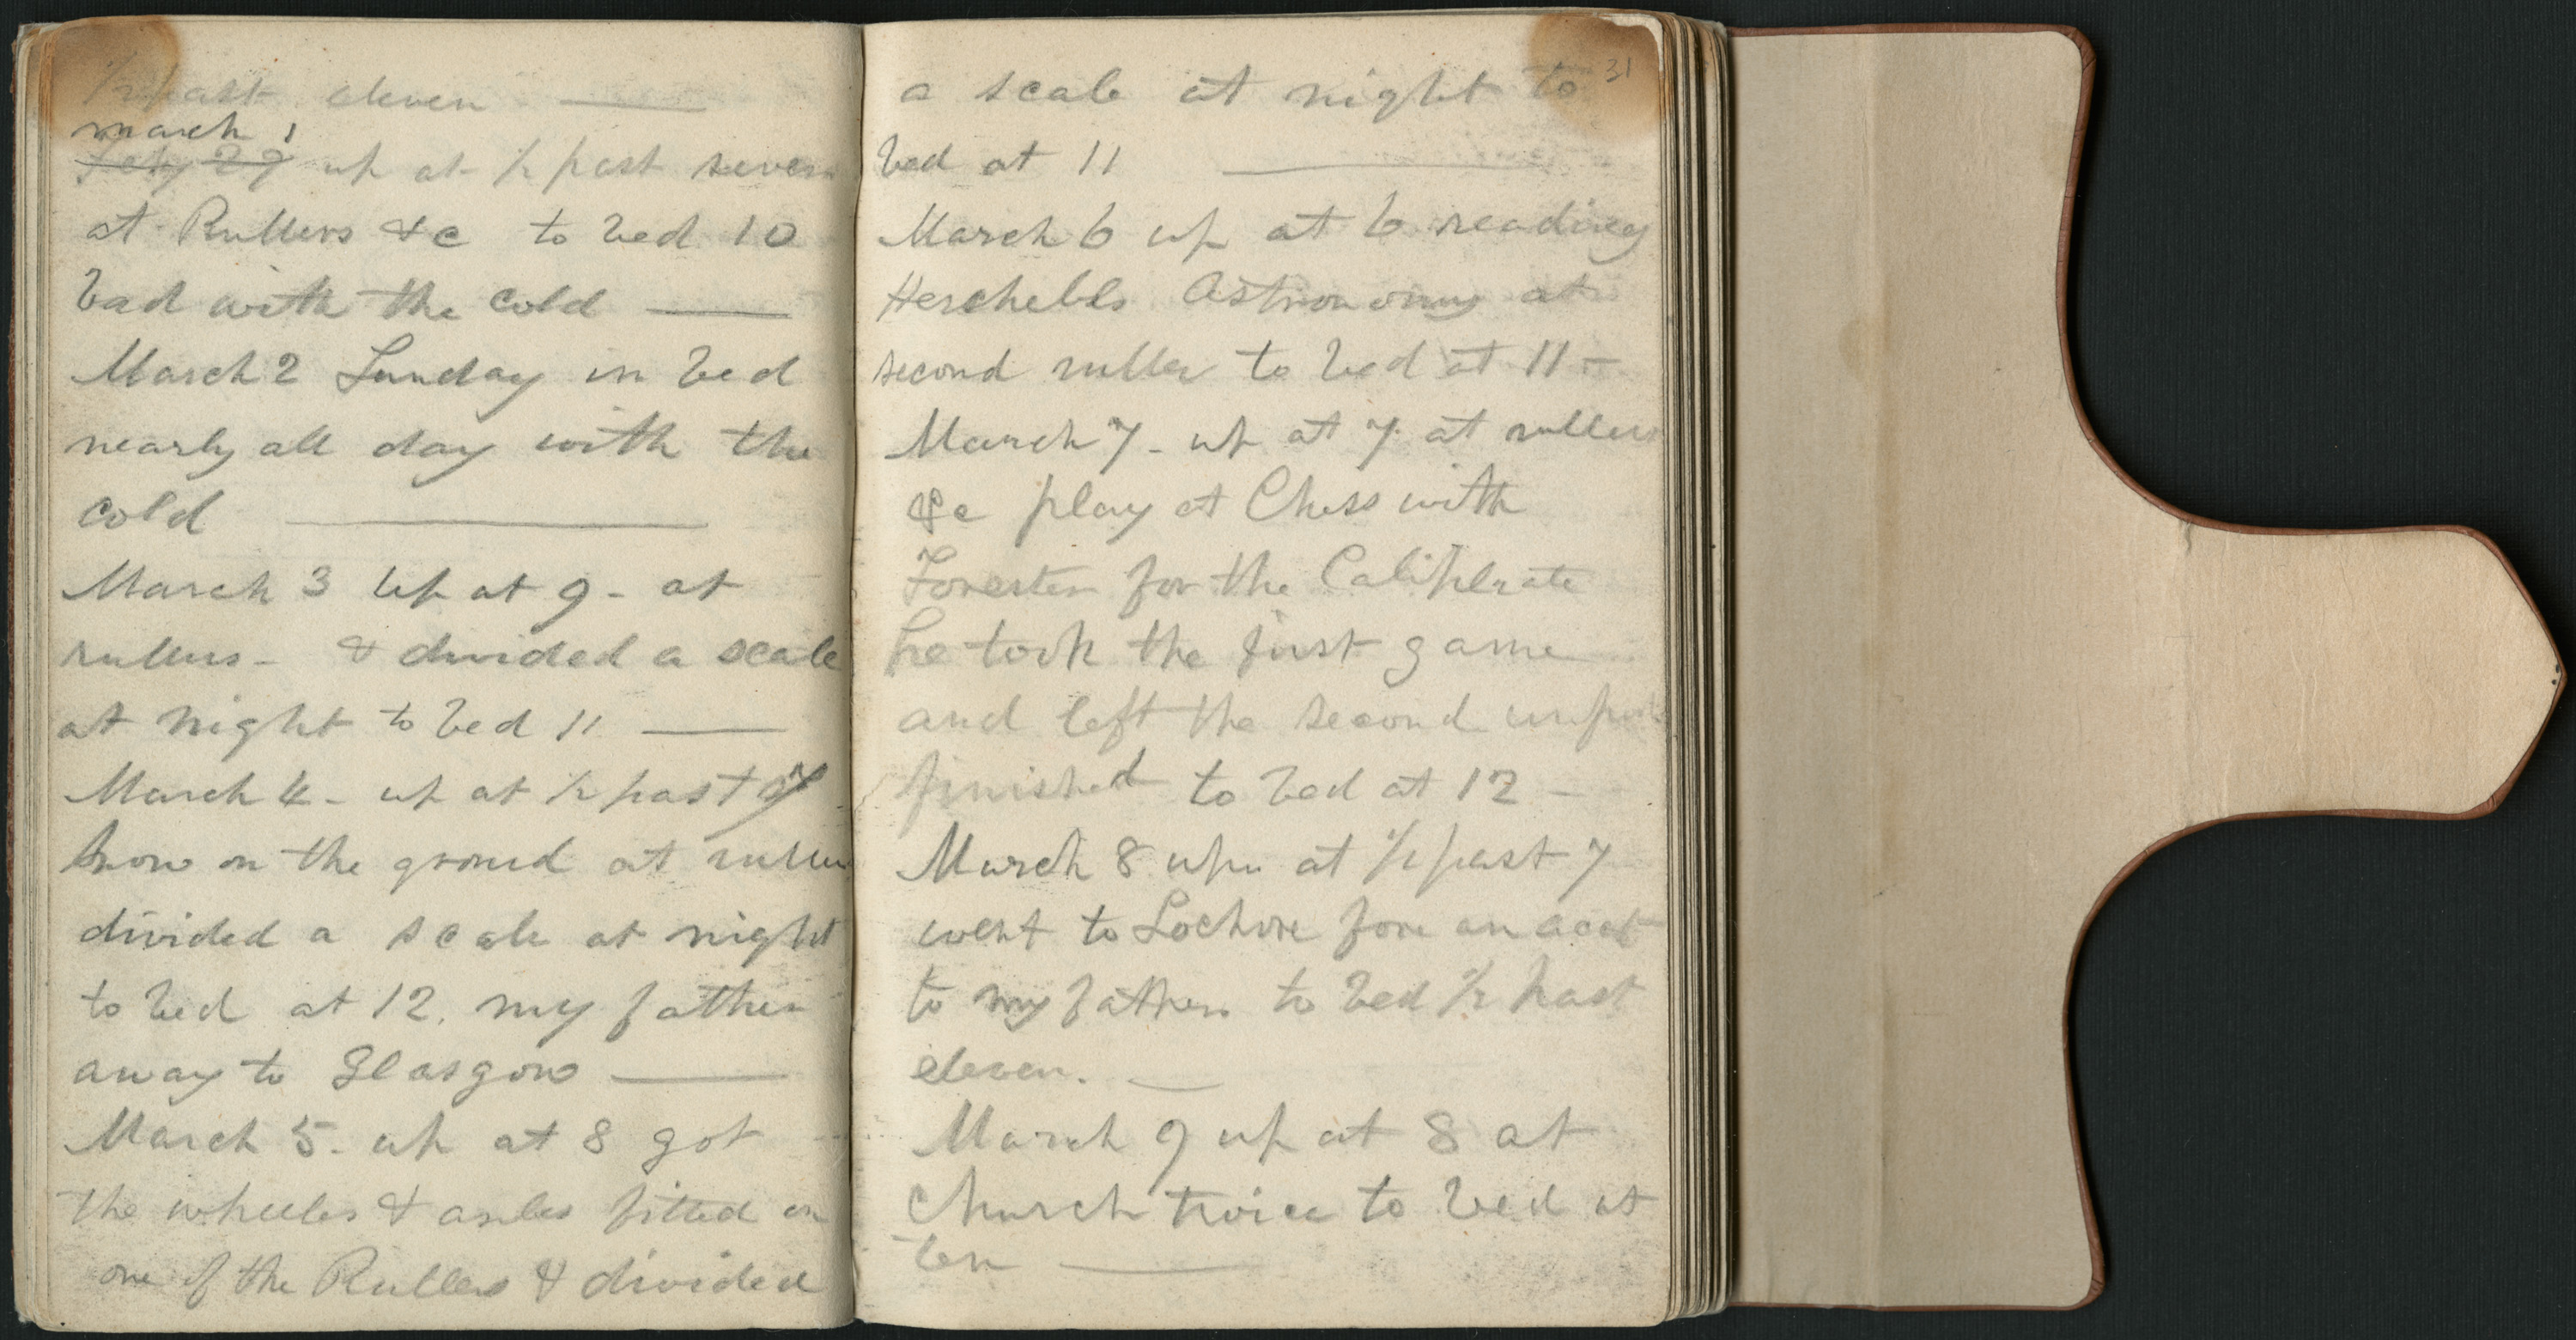 1/2 past eleven ———
march 1
Feby 29 up at 1/2 past seven
at Rullers &c to bed 10
bad with the cold ———
March 2 Sunday in bed
nearly all day with the
cold ———
March 3 Up at 9 - at
rullers - & divided a scale
at night to bed 11 ———
March 4 - up at 1/2 past 7
Snow on the ground at ruller
divided a scale at night
to bed at 12. my father
away to Glasgow ———
March 5 - up at 8 got
the wheeles & axles fitted on
one of the Rullers & divided
31
a scale at night to
bed at 11 ———
March 6 up at 6 reading
Herchells Astronomy at
second ruller to bed at 11 -
March 7 - up at 7. at rullers
&c play at Chess with
Forester for the Caliphate
he took the first game
and left the second
finished to bed at 12 -
March 8 up at 1/2 past 7
went to Lochore for an acct
to my father to bed 1/2 past
eleven. —
March 9 up at 8 at
Church twice to bed at
ten ———